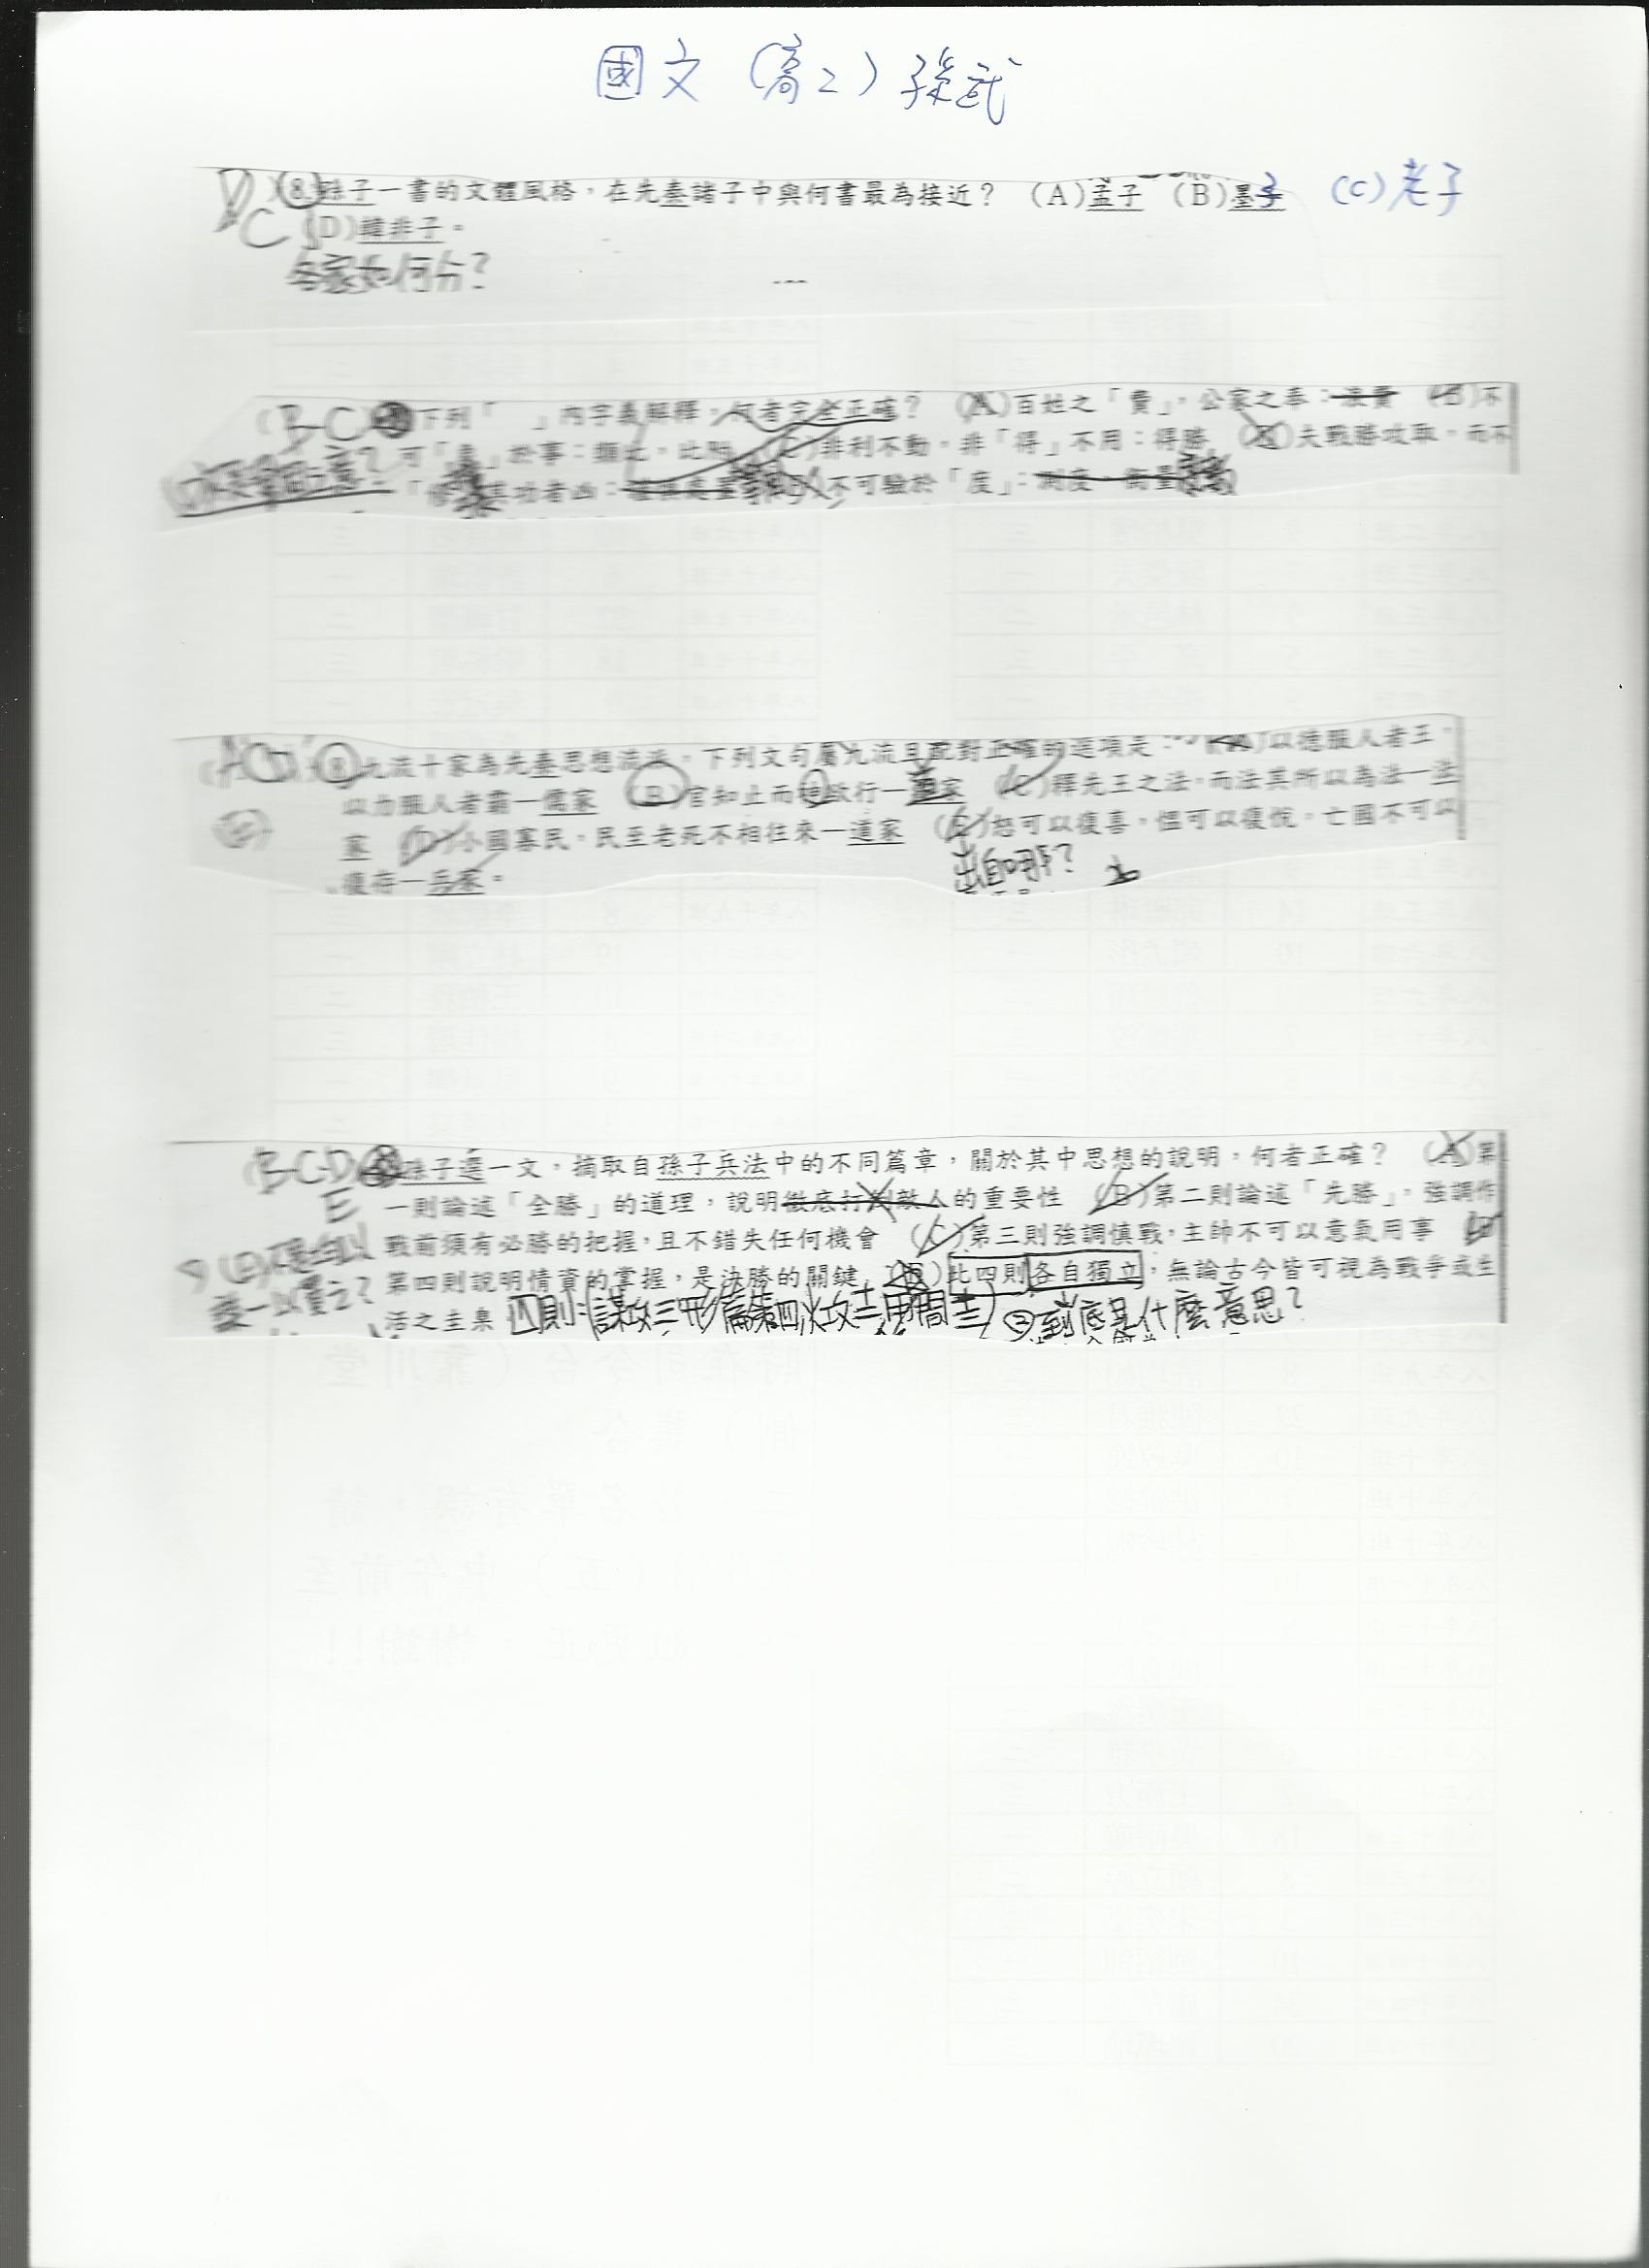 國文(高二)孫武
D 8.孫子一書的文體風格,在先秦諸子中與何書最為接近? (A)孟子 (B)墨子 (C)老子
C (D)韓非子。
各家如何分?
BC 下列「 」內字義解釋,何者完全正確? (A)百姓之「費」,公家之奉:浪費 (B)不
可「象」於事:類比,比附 (C)非利不動,非「得」不用:得勝 (D)夫戰勝攻取,而不
「修」其功者凶: (E)不可驗於「度」:測度、衡量
ACD 8 九流十家為先秦思想流派。下列文句屬九流且配對正確的選項是: (A)以德服人者王,
以力服人者霸—儒家 (B)官知止而神欲行—道家 (C)釋先王之法,而法其所以為法—法
家 (D)小國寡民,民至老死不相往來—道家 (E)怒可以復喜,慍可以復悅,亡國不可以
復存—兵家。
出自哪?
BCD 孫子選一文,摘取自孫子兵法中的不同篇章,關於其中思想的說明,何者正確? (A)第
E 一則論述「全勝」的道理,說明徹底打倒敵人的重要性 (B)第二則論述「先勝」,強調作
戰前須有必勝的把握,且不錯失任何機會 (C)第三則強調慎戰,主帥不可以意氣用事 (D)
第四則說明情資的掌握,是決勝的關鍵 (E)此四則各自獨立,無論古今皆可視為戰爭或生
活之圭臬 四則:(謀攻三形篇第四火攻十二用間十三) ②到底是什麼意思?